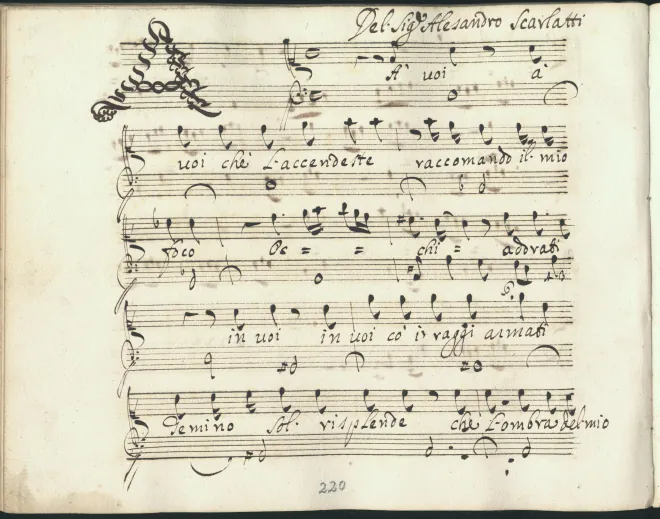 Del Sig.r Alesandro Scarlatti
A voi à
voi che l'accendeste raccomando il mio
foco Oc = = chi = adorati
in voi in voi co i raggi armati
Temino sol risplende che l'ombra del mio
220